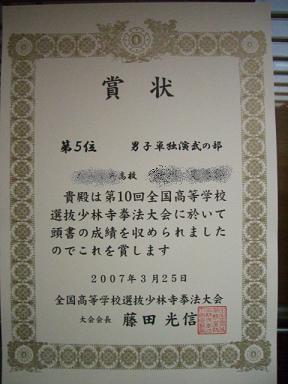 賞状
第5位　男子単独演武の部
高校
貴殿は第10回全国高等学校
選抜少林寺拳法大会に於いて
頭書の成績を収められました
のでこれを賞します
2007年3月25日
全国高等学校選抜少林寺拳法大会
大会会長　藤田光信